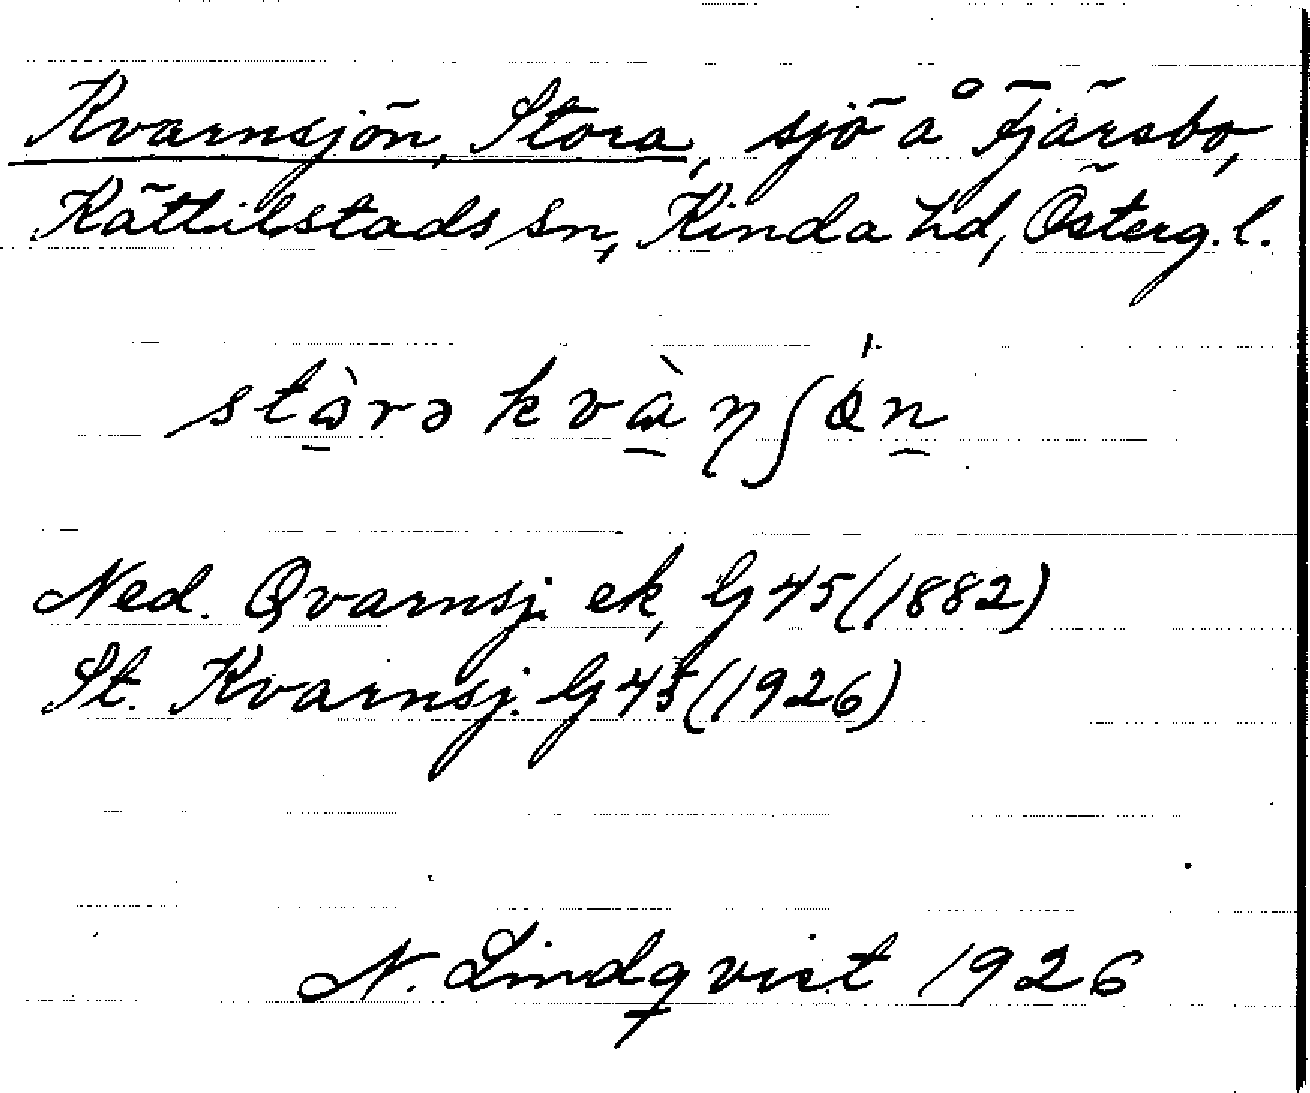 Kvarnsjön, Stora, sjö å Fjärsbo,
Kättilstads sn, Kinda hd, Österg. l.
stὼrə kvὰɳʃø̀n
Ned. Qvarnsj. ek, Gj 45 (1882)
St. Kvarnsj. Gj 45 (1926)
N. Lindqvist 1926